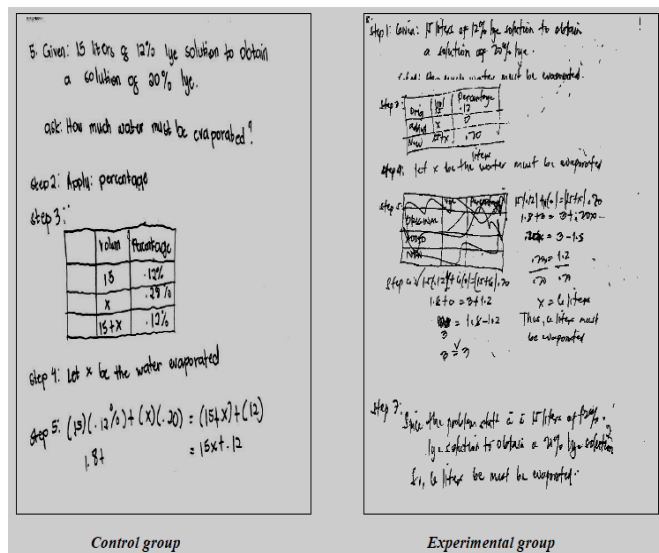 5. Given: 15 liters of 12% lye solution to obtain
a solution of 20% lye.
ask: How much water must be evaporated?
Step 2: Apply: percentage
Step 3:
Volum Percentage
15 .12%
x .20%
15+x .12%
Step 4: Let x be the water evaporated
Step 5: (15)(.12%)+(x)(.20) = (15+x)+(12)
1.8+ = 15x+.12
Control group
Step 1: Given: 15 liters of 12% lye solution to obtain
a solution of 20% lye.
how much water must be evaporated.
Step 3:
Percentage
Orig 15 .12
added x 0
New 15+x .20
liters
Let x be the water must be evaporated
Step 5
15(.12)+x(0)=(15+x).20
1.8+0 = 3+.20x
= 3-1.8
= 1.2
.20 .20
x = 6 liters
Thus, 6 liters must
be evaporated
1.8+0 = 3+1.2
= 1.8-1.2
3 = 3
Step 7:
Since the problem 15 liters of
lye solution to obtain a 20% lye solution
So, 6 liters be must be evaporated.
Experimental group